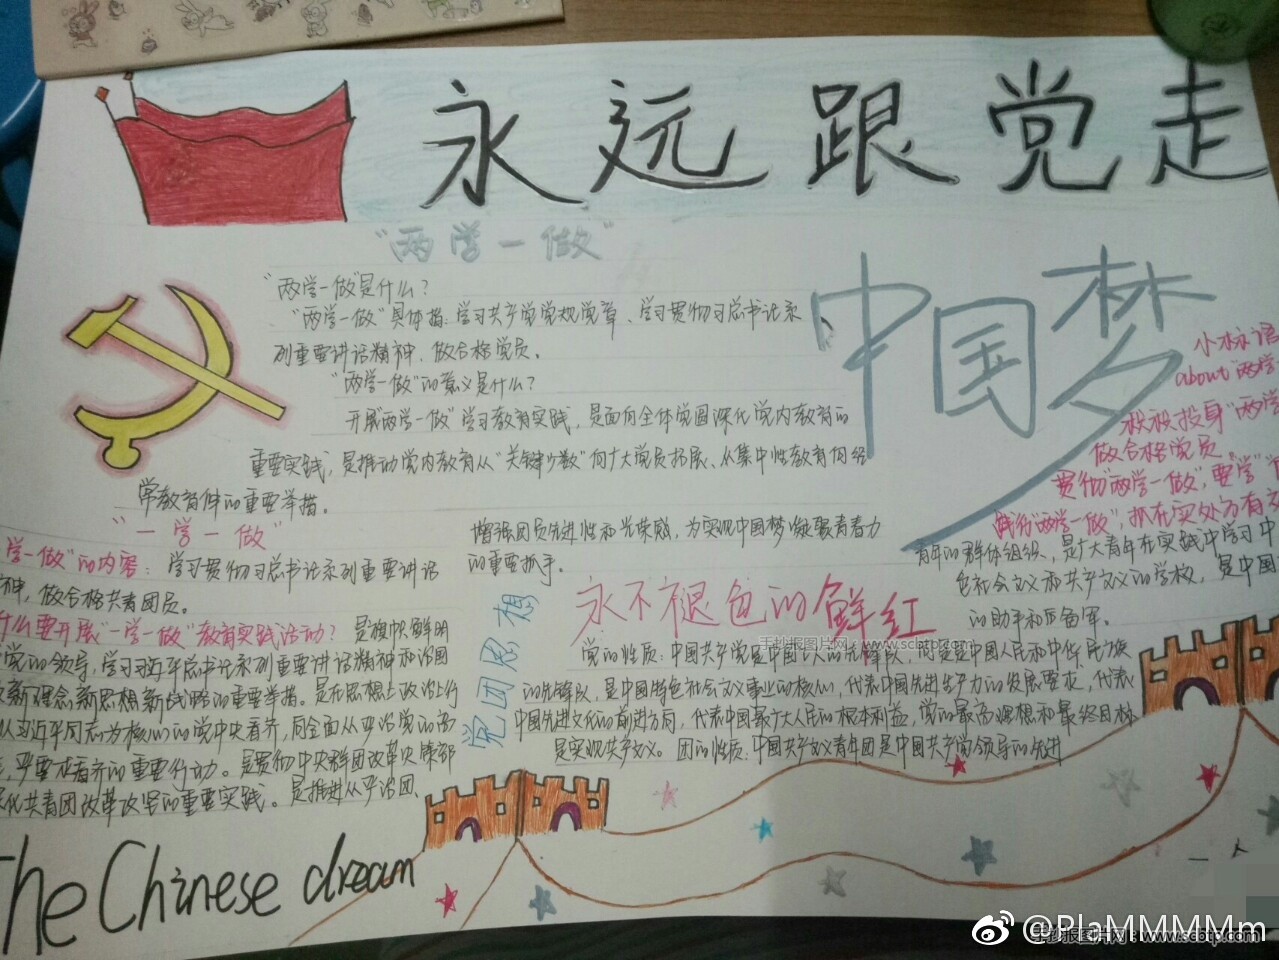 永远跟党走
"两学一做"
"两学一做"是什么？
"两学一做"具体指：学习共产党党规党章、学习贯彻习总书记系
列重要讲话精神、做合格党员。
"两学一做"的意义是什么？
开展"两学一做"学习教育实践，是面向全体党员深化党内教育的
重要实践，是推动党内教育从"关键少数"向广大党员拓展、从集中性教育向经
常教育件的重要举措。
中国梦
小林语
about 两学
积极投身"两学
做合格党员。
贯彻"两学一做"，要学
践行"两学一做"，抓在实处为有
"一学一做"
学一做"的内容：学习贯彻习总书记系列重要讲话
神，做合格共青团员。
什么要开展"一学一做"教育实践活动？是旗帜鲜明
党的领导，学习习近平总书记系列重要讲话精神和治国
新理念新思想新战略的重要举措。是在思想上政治上行
以习近平同志为核心的党中央看齐，向全面从严治党的
，严要求看齐的重要行动。是贯彻中央群团改革决策部
化共青团改革攻坚的重要实践。是推进从严治团、
增强团员先进性和光荣感，为实现中国梦凝聚青春力
的重要抓手。
党团思想
永不褪色的鲜红
手抄报图片网：www.scbtp.com
党的性质：中国共产党是中国工人的先锋队，同是是中国人民和中华民族
的先锋队，是中国特色社会主义事业的核心，代表中国先进生产力的发展要求，代表
中国先进文化的前进方向，代表中国最广大人民的根本利益，党的最高理想和最终目标
是实现共产主义。团的性质：中国共产主义青年团是中国共产党领导的先进
青年的群体组织，是广大青年在实践中学习中
色社会主义和共产主义的学校，是中国
的助手和后备军。
The Chinese dream
一人
@PlaMMMMm
手抄报图片网：www.scbtp.com